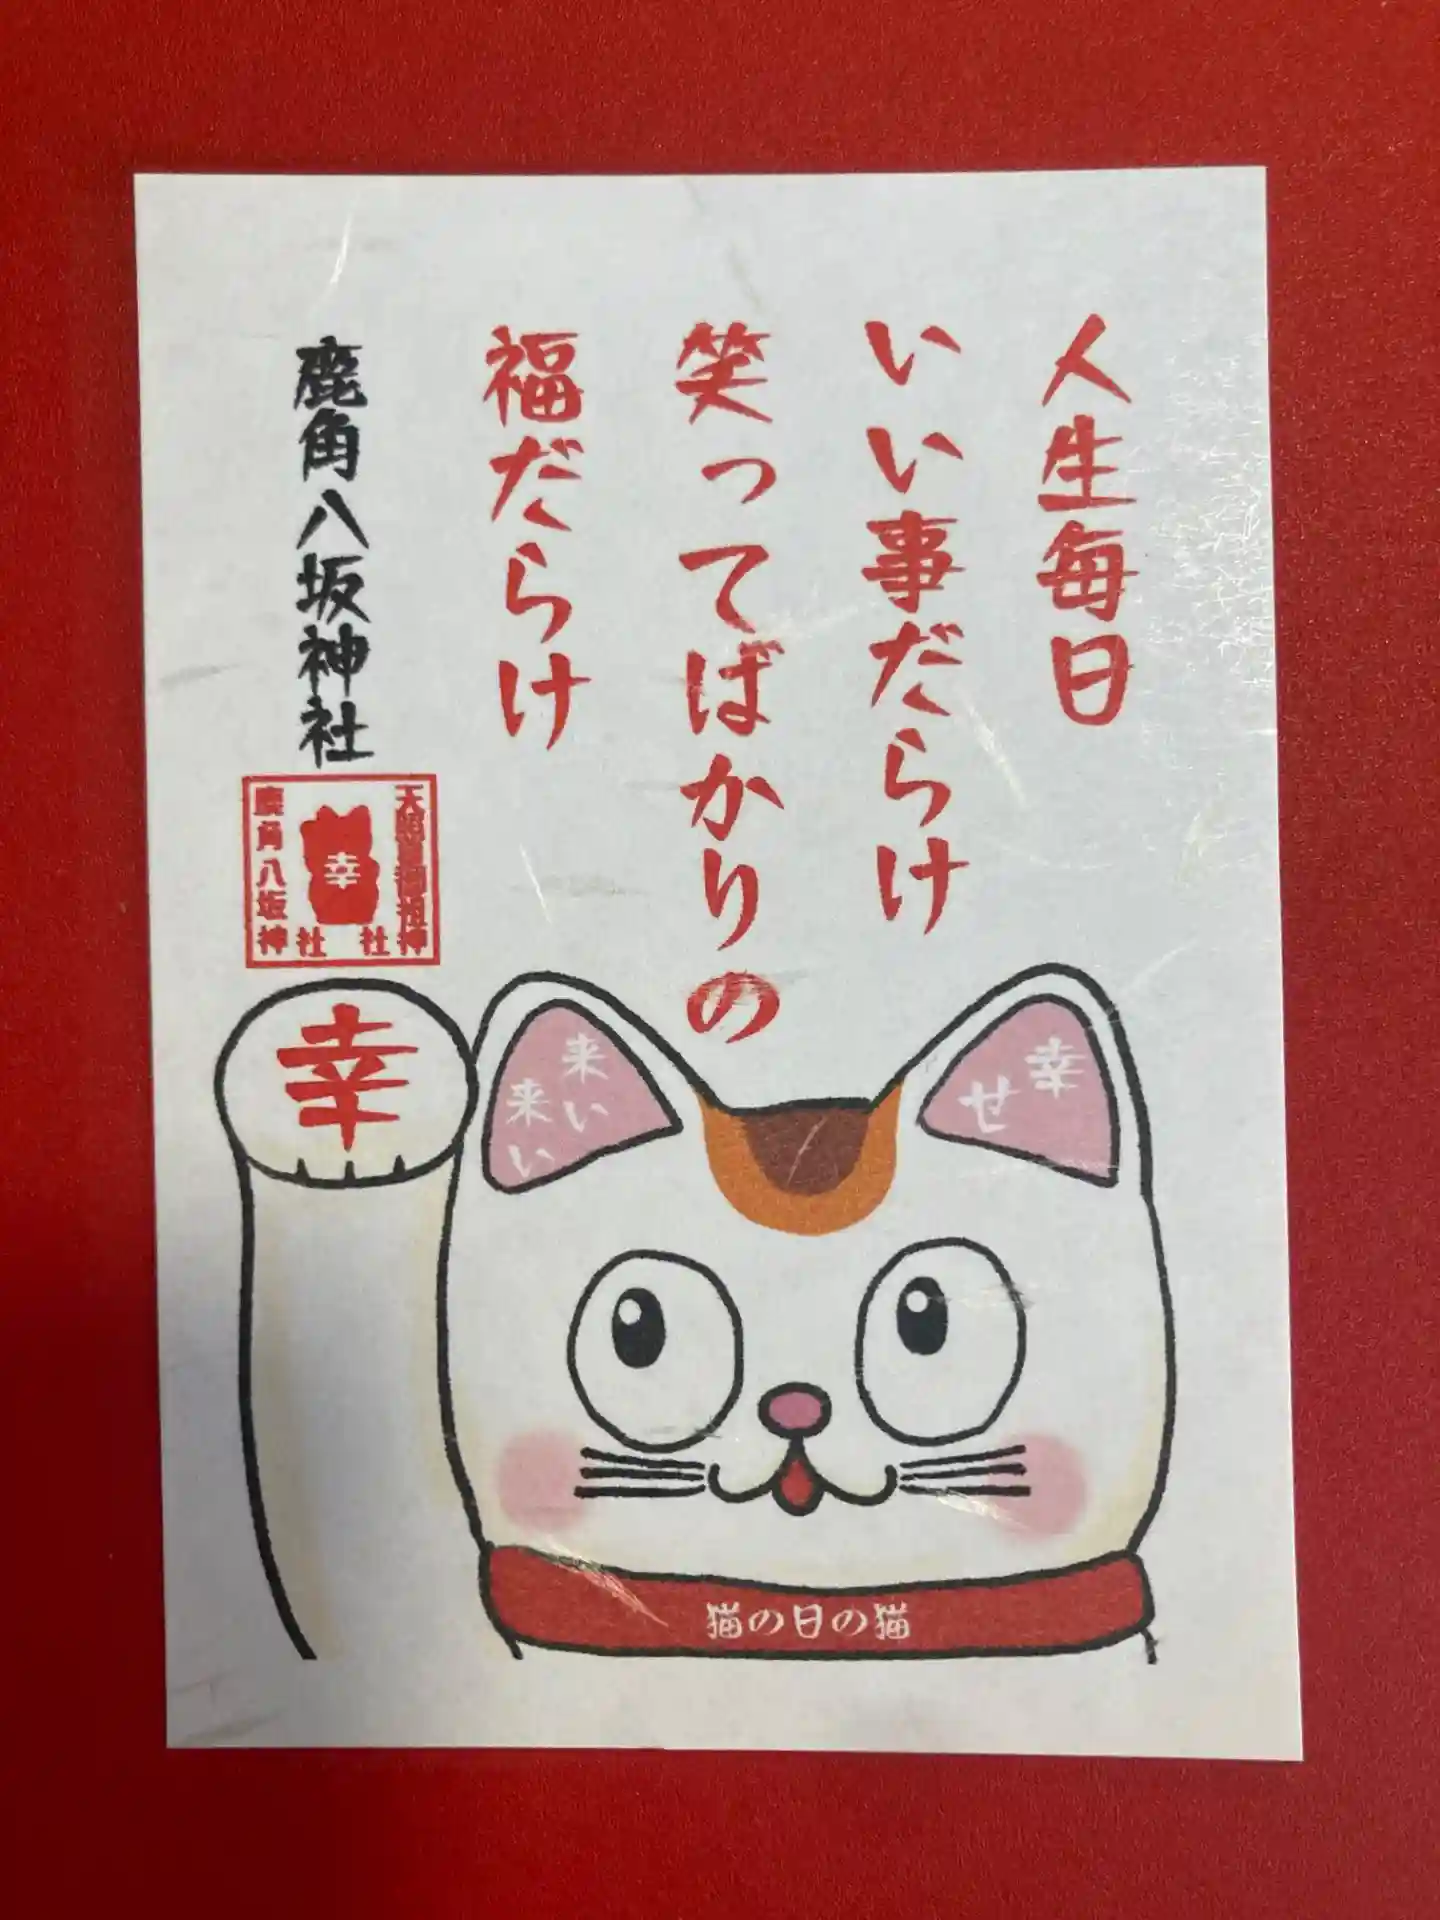 人生毎日
いい事だらけ
笑ってばかりの
福だらけ
鹿角八坂神社
幸
鹿角八坂神社
幸
幸せ
来い
来い
猫の日の猫